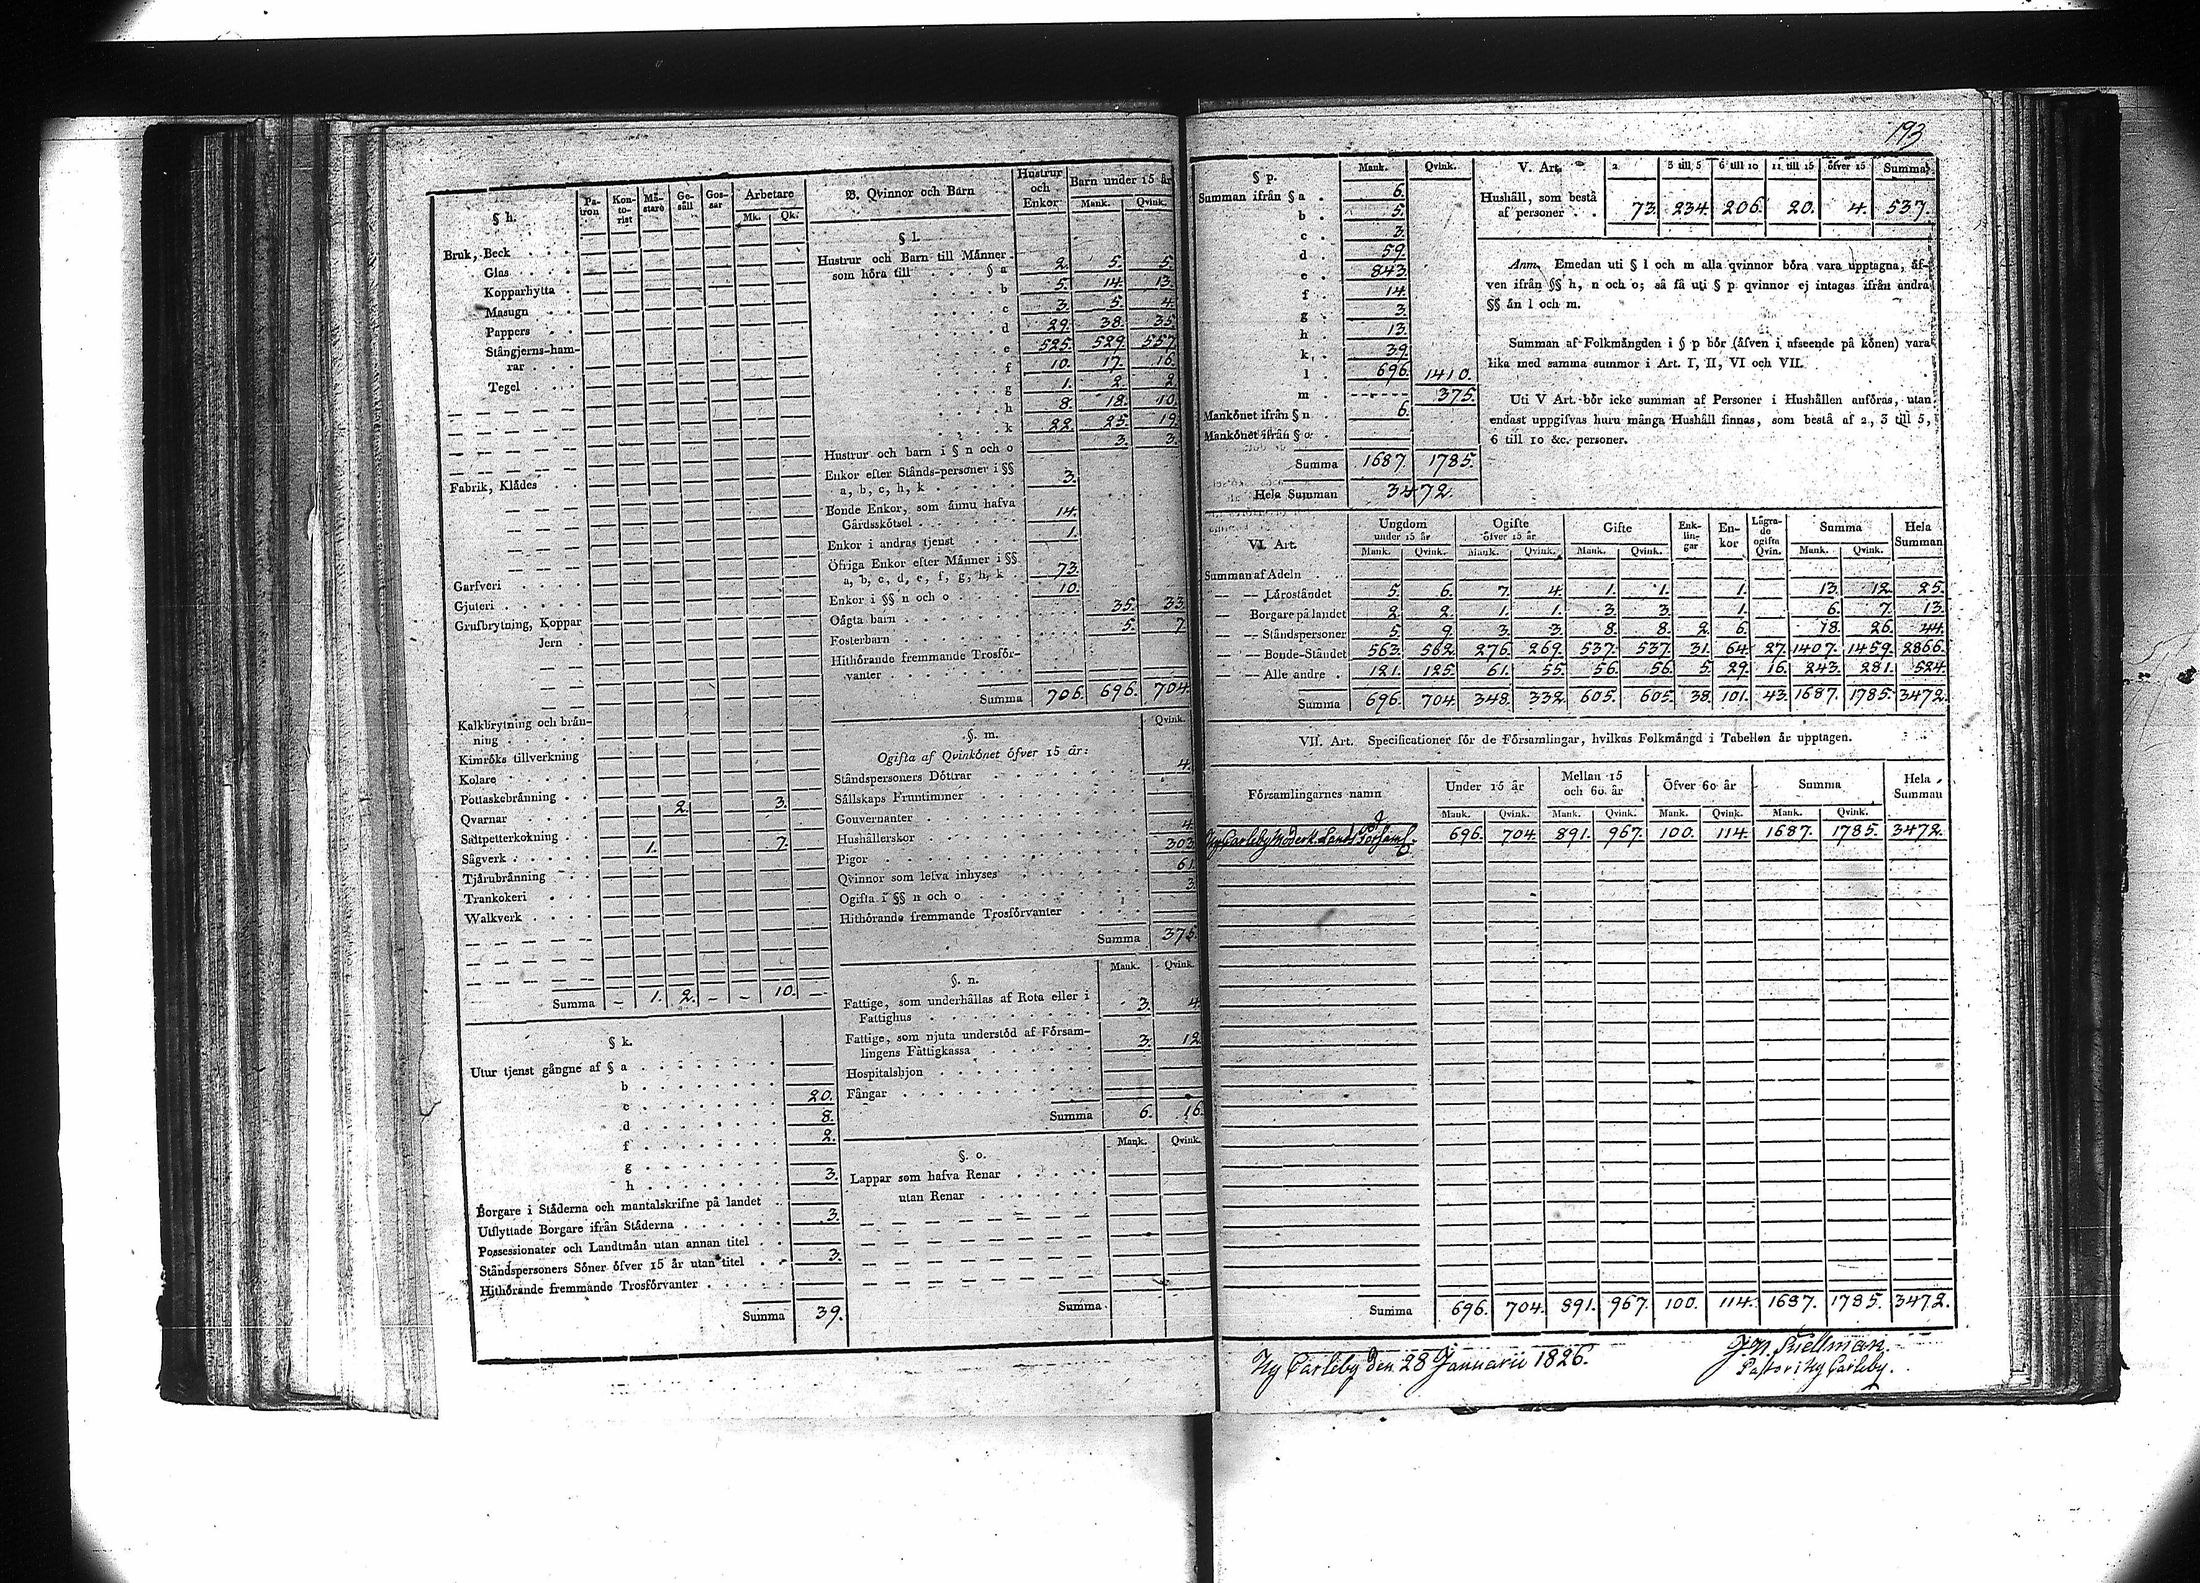 193
§ h.
Pa-
tron
Kon-
to-
rist
Mä-
stare
Ge-
säll
Gos-
sar
Arbetare
Mk. Qk.
Bruk, Beck . . .
Glas . . . .
Kopparhytta .
Masugn . .
Pappers . .
Stångjerns-ham-
rar . . .
Tegel . . .
Fabrik, Klädes . .
Garfveri . . . .
Gjuteri . . . . .
Grufbrytning, Koppar
Jern .
Kalkbrytning och brän-
ning . . . . .
Kimröks tillverkning
Kolare . . . . .
Pottaskebränning . .
Qvarnar . . . . 2. 3.
Saltpetterkokning .
Sågverk . . . . . 1. 7.
Tjärubränning . . .
Trankokeri . . .
Walkverk . . . .
Summa – 1. 2. – – 10. –
§ k.
Utur tjenst gångne af § a . . . . . . . .
b . . . . . . . . 20.
c . . . . . . . . 8.
d . . . . . . . . 2.
f . . . . . . . .
g . . . . . . . . 3.
h . . . . . . . .
Borgare i Städerna och mantalskrifne på landet . 3.
Utflyttade Borgare ifrån Städerna . . . . . .
Possessionater och Landtmän utan annan titel . . 3.
Ståndspersoners Söner öfver 15 år utan titel . .
Hithörande fremmande Trosförvanter . . . .
Summa 39.
B. Qvinnor och Barn
Hustrur
och
Enkor
Barn under 15 år
Mank. Qvink.
§ l.
Hustrur och Barn till Männer
som höra till . . . § a 2. 5. 5
b 5. 14. 13.
c 3. 5. 4.
d 29. 38. 35.
e 525. 529. 557
f 10. 17. 16
g 1. 2. 2
h 8. 18. 10.
k 22. 25. 19.
Hustrur och barn i § n och o 3. 3.
Enkor efter Stånds-personer i §§
a, b, c, h, k . . . . . 3.
Bonde Enkor, som ännu hafva
Gårdsskötsel . . . . . . 14.
Enkor i andras tjenst . . . 1.
Öfriga Enkor efter Männer i §§
a, b, c, d, e, f, g, h, k . 73.
Enkor i §§ n och o . . . . 10.
Oägta barn . . . . . . . 35. 33.
Fosterbarn . . . . . . . 5. 7
Hithörande fremmande Trosför-
vanter . . . . . . . .
Summa 706. 696. 704.
§. m.
Qvink.
Ogifta af Qvinkönet öfver 15 år:
Ståndspersoners Döttrar . . . . . . . 4.
Sällskaps Fruntimmer . . . . . . .
Gouvernanter . . . . . . . . .
Hushållerskor . . . . . . . . . 4.
Pigor . . . . . . . . . . . 303
Qvinnor som lefva inhyses . . . . . . 61.
Ogifta i §§ n och o . . . . . . . . 3.
Hithörande fremmande Trosförvanter . . . .
Summa 375.
§. n.
Mank. Qvink.
Fattige, som underhållas af Rota eller i
Fattighus . . . . . . . . . 3. 4.
Fattige, som njuta understöd af Försam-
lingens Fattigkassa . . . . . . 3. 12.
Hospitalshjon . . . . . . . . .
Fångar . . . . . . . . . . .
Summa 6. 16.
§. o.
Mank. Qvink.
Lappar som hafva Renar . . . . .
utan Renar . . . . . . .
Summa.
§ p.
Mank. Qvink.
Summan ifrån § a . 6.
b . 5.
c . 3.
d . 59.
e . 843.
f . 14.
g . 3.
h . 13.
k . 39.
l . 696. 1410.
m . 375.
Mankönet ifrån § n . 6.
Mankönet ifrån § o .
Summa 1687. 1785.
Hela Summan 3472.
V. Art.
2 3 till 5 6 till 10 11 till 15 öfver 15 Summa
Hushåll, som bestå
af personer . . 73. 234. 206. 20. 4. 537.
Anm. Emedan uti § l och m alla qvinnor böra vara upptagna, äf-
ven ifrån §§ h, n och o; så få uti § p qvinnor ej intagas ifrån andra
§§ än l och m.
Summan af Folkmängden i § p bör (äfven i afseende på könen) vara
lika med samma summor i Art. I, II, VI och VII.
Uti V Art. bör icke summan af Personer i Hushållen anföras, utan
endast uppgifvas huru många Hushåll finnas, som bestå af 2, 3 till 5,
6 till 10 &c. personer.
VI. Art.
Ungdom
under 15 år
Ogifte
öfver 15 år
Gifte
Enk-
lin-
gar
En-
kor
Lägra-
de
ogifta
Qvin.
Summa
Hela
Summan
Mank. Qvink. Mank. Qvink. Mank. Qvink. Mank. Qvink.
Summan af Adeln . .
— — Läroståndet 5. 6. 7. 4. 1. 1. 1. 13. 12. 25.
— Borgare på landet 2. 2. 1. 1. 3. 3. 1. 6. 7. 13.
— — Ståndspersoner 5. 9. 3. 3. 8. 8. 2. 6. 18. 26. 44.
— — Bonde-Ståndet 563. 562. 276. 269. 537. 537. 31. 64. 27. 1407. 1459. 2866.
— — Alle andre . 121. 125. 61. 55. 56. 56. 5. 29. 16. 243. 281. 524.
Summa 696. 704. 348. 332. 605. 605. 38. 101. 43. 1687. 1785. 3472.
VII. Art. Specificationer för de Församlingar, hvilkas Folkmängd i Tabellen är upptagen.
Församlingarnes namn
Under 15 år
Mellan 15
och 60 år
Öfver 60 år
Summa
Hela
Summan
Mank. Qvink. Mank. Qvink. Mank. Qvink. Mank. Qvink.
Ny Carleby Moderk. Lands Församl. 696. 704. 891. 967. 100. 114. 1687. 1785. 3472.
Summa 696. 704. 891. 967. 100. 114. 1687. 1785. 3472.
Ny Carleby den 28 Januarii 1826.
Pastor i Ny Carleby.